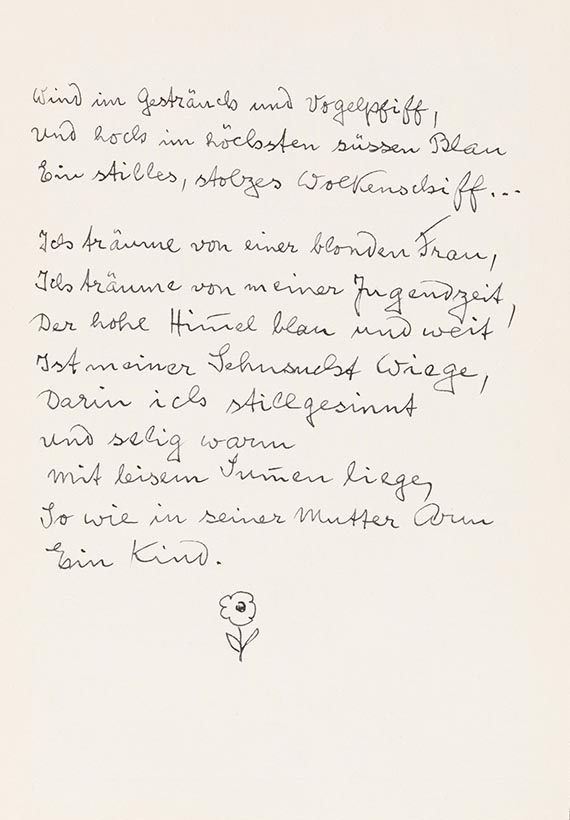 Wind im Gesträuch und Vogelpfiff,
und hoch im höchsten süssen Blau
Ein stilles, stolzes Wolkenschiff...
Ich träume von einer blonden Frau,
Ich träume von meiner Jugendzeit,
Der hohe Him̅el blau und weit
Ist meiner Sehnsucht Wiege,
Darin ich stillgesinnt
und selig warm
mit leisem Sum̅en liege,
So wie in seiner Mutter Arm
Ein Kind.